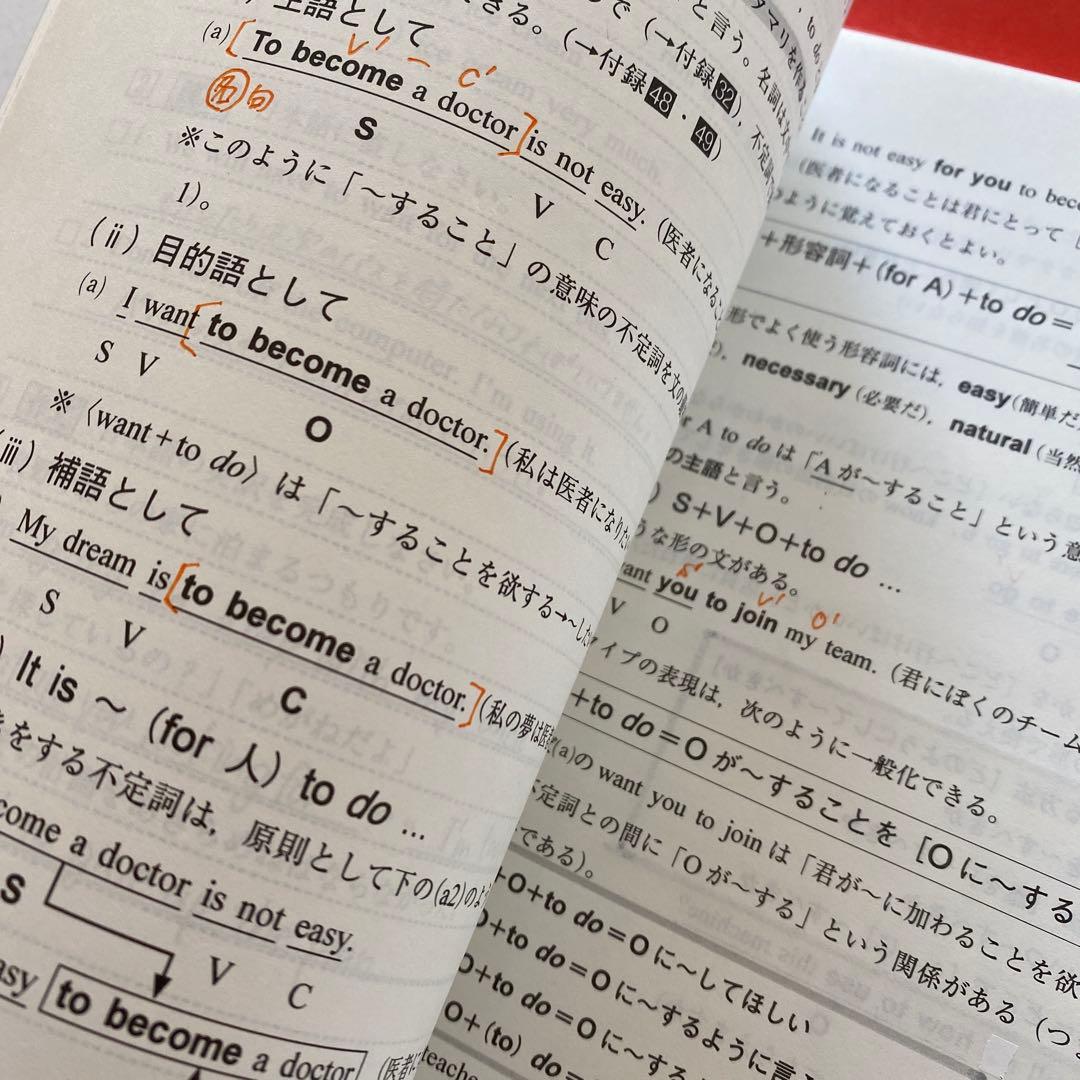 主語として
(a) [To become a doctor] is not easy. (医者になること
V' C'
名句
S V C
※このように「～すること」の意味の不定詞を文の
1)。
(ⅱ) 目的語として
(a) I want [to become a doctor.] (私は医者になりたい
S V O
※〈want＋to do〉は「～することを欲する→～した
(ⅲ) 補語として
My dream is [to become a doctor.] (私の夢は医
S V C
It is ～ (for 人) to do …
をする不定詞は，原則として下の(a2)のよ
come a doctor is not easy.
S V C
easy to become a doctor. (医者に
できる。(→付録48・49)
で (→付録32)，不定詞
と言う。名詞は
タマリを作
, to do
It is not easy for you to beco
(医者になることは君にとって
のように覚えておくとよい。
＋形容詞＋(for A)＋to do＝
形でよく使う形容詞には，easy (簡単だ
), necessary (必要だ), natural (当然
for A to do は「Aが～すること」という意
の主語と言う。
) S＋V＋O＋to do …
うな形の文がある。
want you to join my team. (君にぼくのチーム
S' V' O'
V O
タイプの表現は，次のように一般化できる。
＋to do＝Oが～することを [Oに～する
(a)の want you to join は「君が～に加わることを欲
不定詞との間に「Oが～する」という関係がある (つ
である)。
＋O＋to do＝Oに～してほしい
O＋to do＝Oに～するように言
O＋to do＝Oに～する
O＋(to) do＝
teache